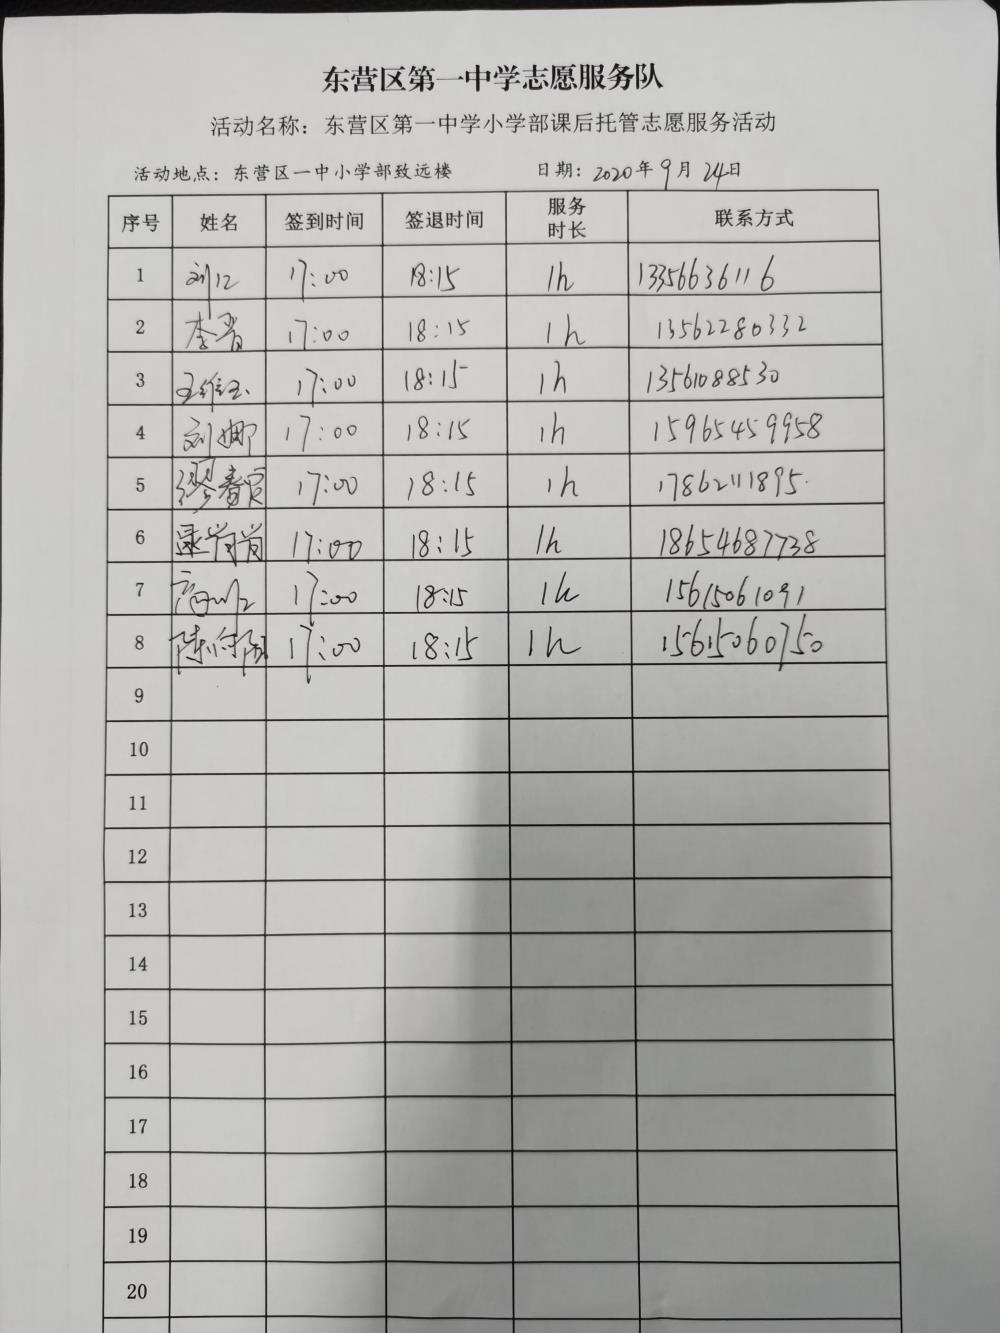 东营区第一中学志愿服务队
活动名称：东营区第一中学小学部课后托管志愿服务活动
活动地点：东营区一中小学部致远楼 日期：2020年9月24日
序号 姓名 签到时间 签退时间 服务时长 联系方式
1 刘江 17:00 18:15 1h 13356636116
2 李青 17:00 18:15 1h 13562280332
3 王维玉 17:00 18:15 1h 13561088530
4 刘娜 17:00 18:15 1h 15965459958
5 17:00 18:15 1h 17862111895
6 逯肖肖 17:00 18:15 1h 18654687738
7 17:00 18:15 1h 15615061091
8 17:00 18:15 1h 15615060750
9
10
11
12
13
14
15
16
17
18
19
20